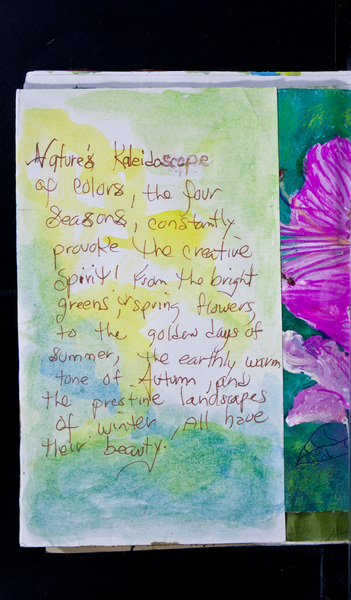 Nature's Kaleidoscope
of colors, the four
seasons, constantly
provoke the creative
spirit! From the bright
greens, & spring flowers,
to the golden days of
summer, the earthly warm
tone of Autumn, and
the prestine landscapes
of winter, All have
their beauty.